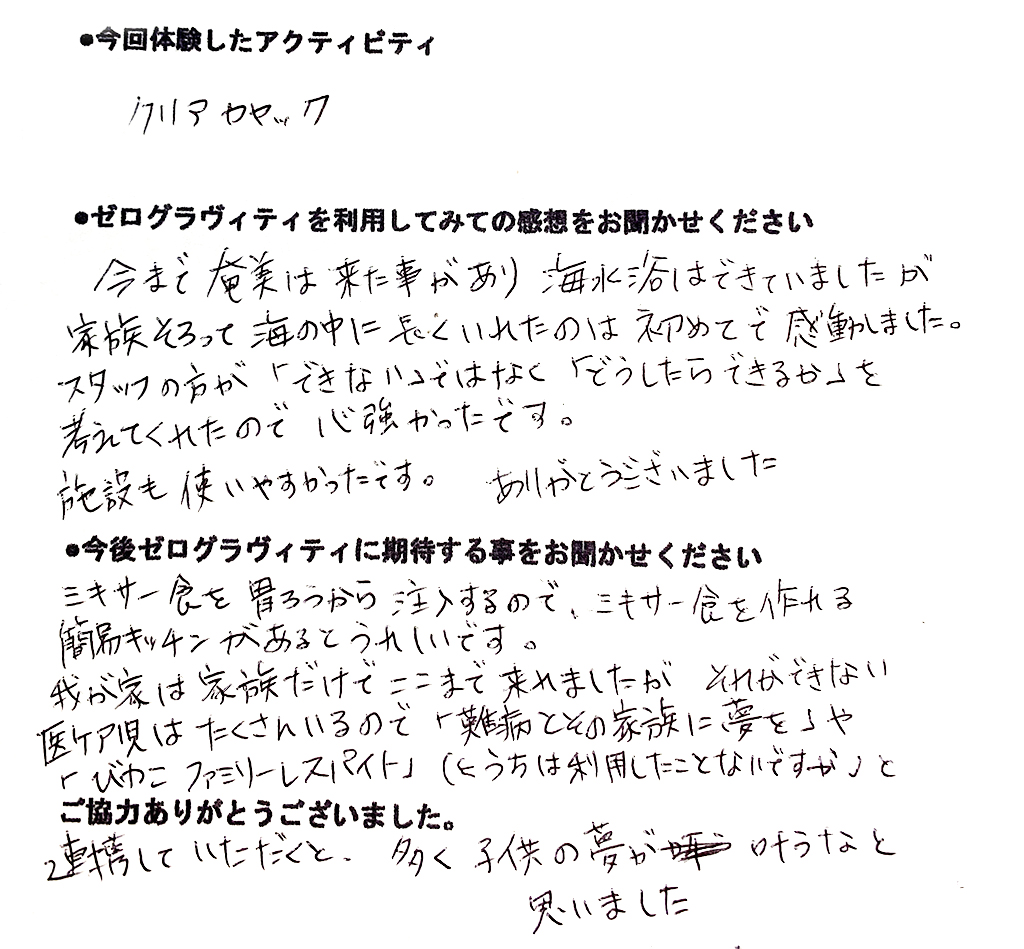 ●今回体験したアクティビティ
クリアカヤック
●ゼログラヴィティを利用してみての感想をお聞かせください
今まで奄美は来た事があり 海水浴はできていましたが
家族そろって海の中に長くいれたのは初めてで感動しました。
スタッフの方が「できない」ではなく「どうしたらできるか」を
考えてくれたので心強かったです。
施設も使いやすかったです。 ありがとうございました
●今後ゼログラヴィティに期待する事をお聞かせください
ミキサー食を胃ろうから注入するので、ミキサー食を作れる
簡易キッチンがあるとうれしいです。
我が家は家族だけでここまで来れましたが それができない
医ケア児はたくさんいるので「難病とその家族に夢を」や
「びわこファミリーレスパイト」(←うちは利用したことないですが)と
ご協力ありがとうございました。
連携していただくと、多く子供の夢が叶うなと
思いました